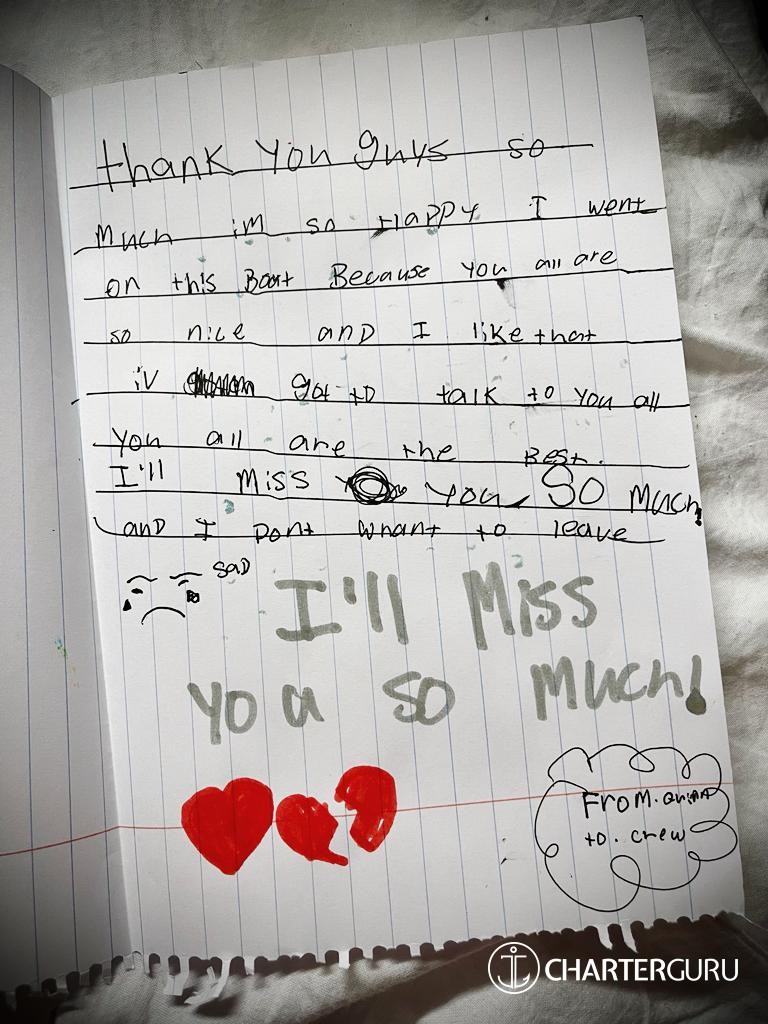 thank You guys so
Much im so HAPPY I went
on this Boat Because you all are
so nice anD I like that
iv got to talk to you all
You all are the BEst.
I'll Miss you SO Much!
anD I Dont whant to leave
SAD
I'll Miss
you so Much!
FroM. Quinn
to. crew
CHARTERGURU